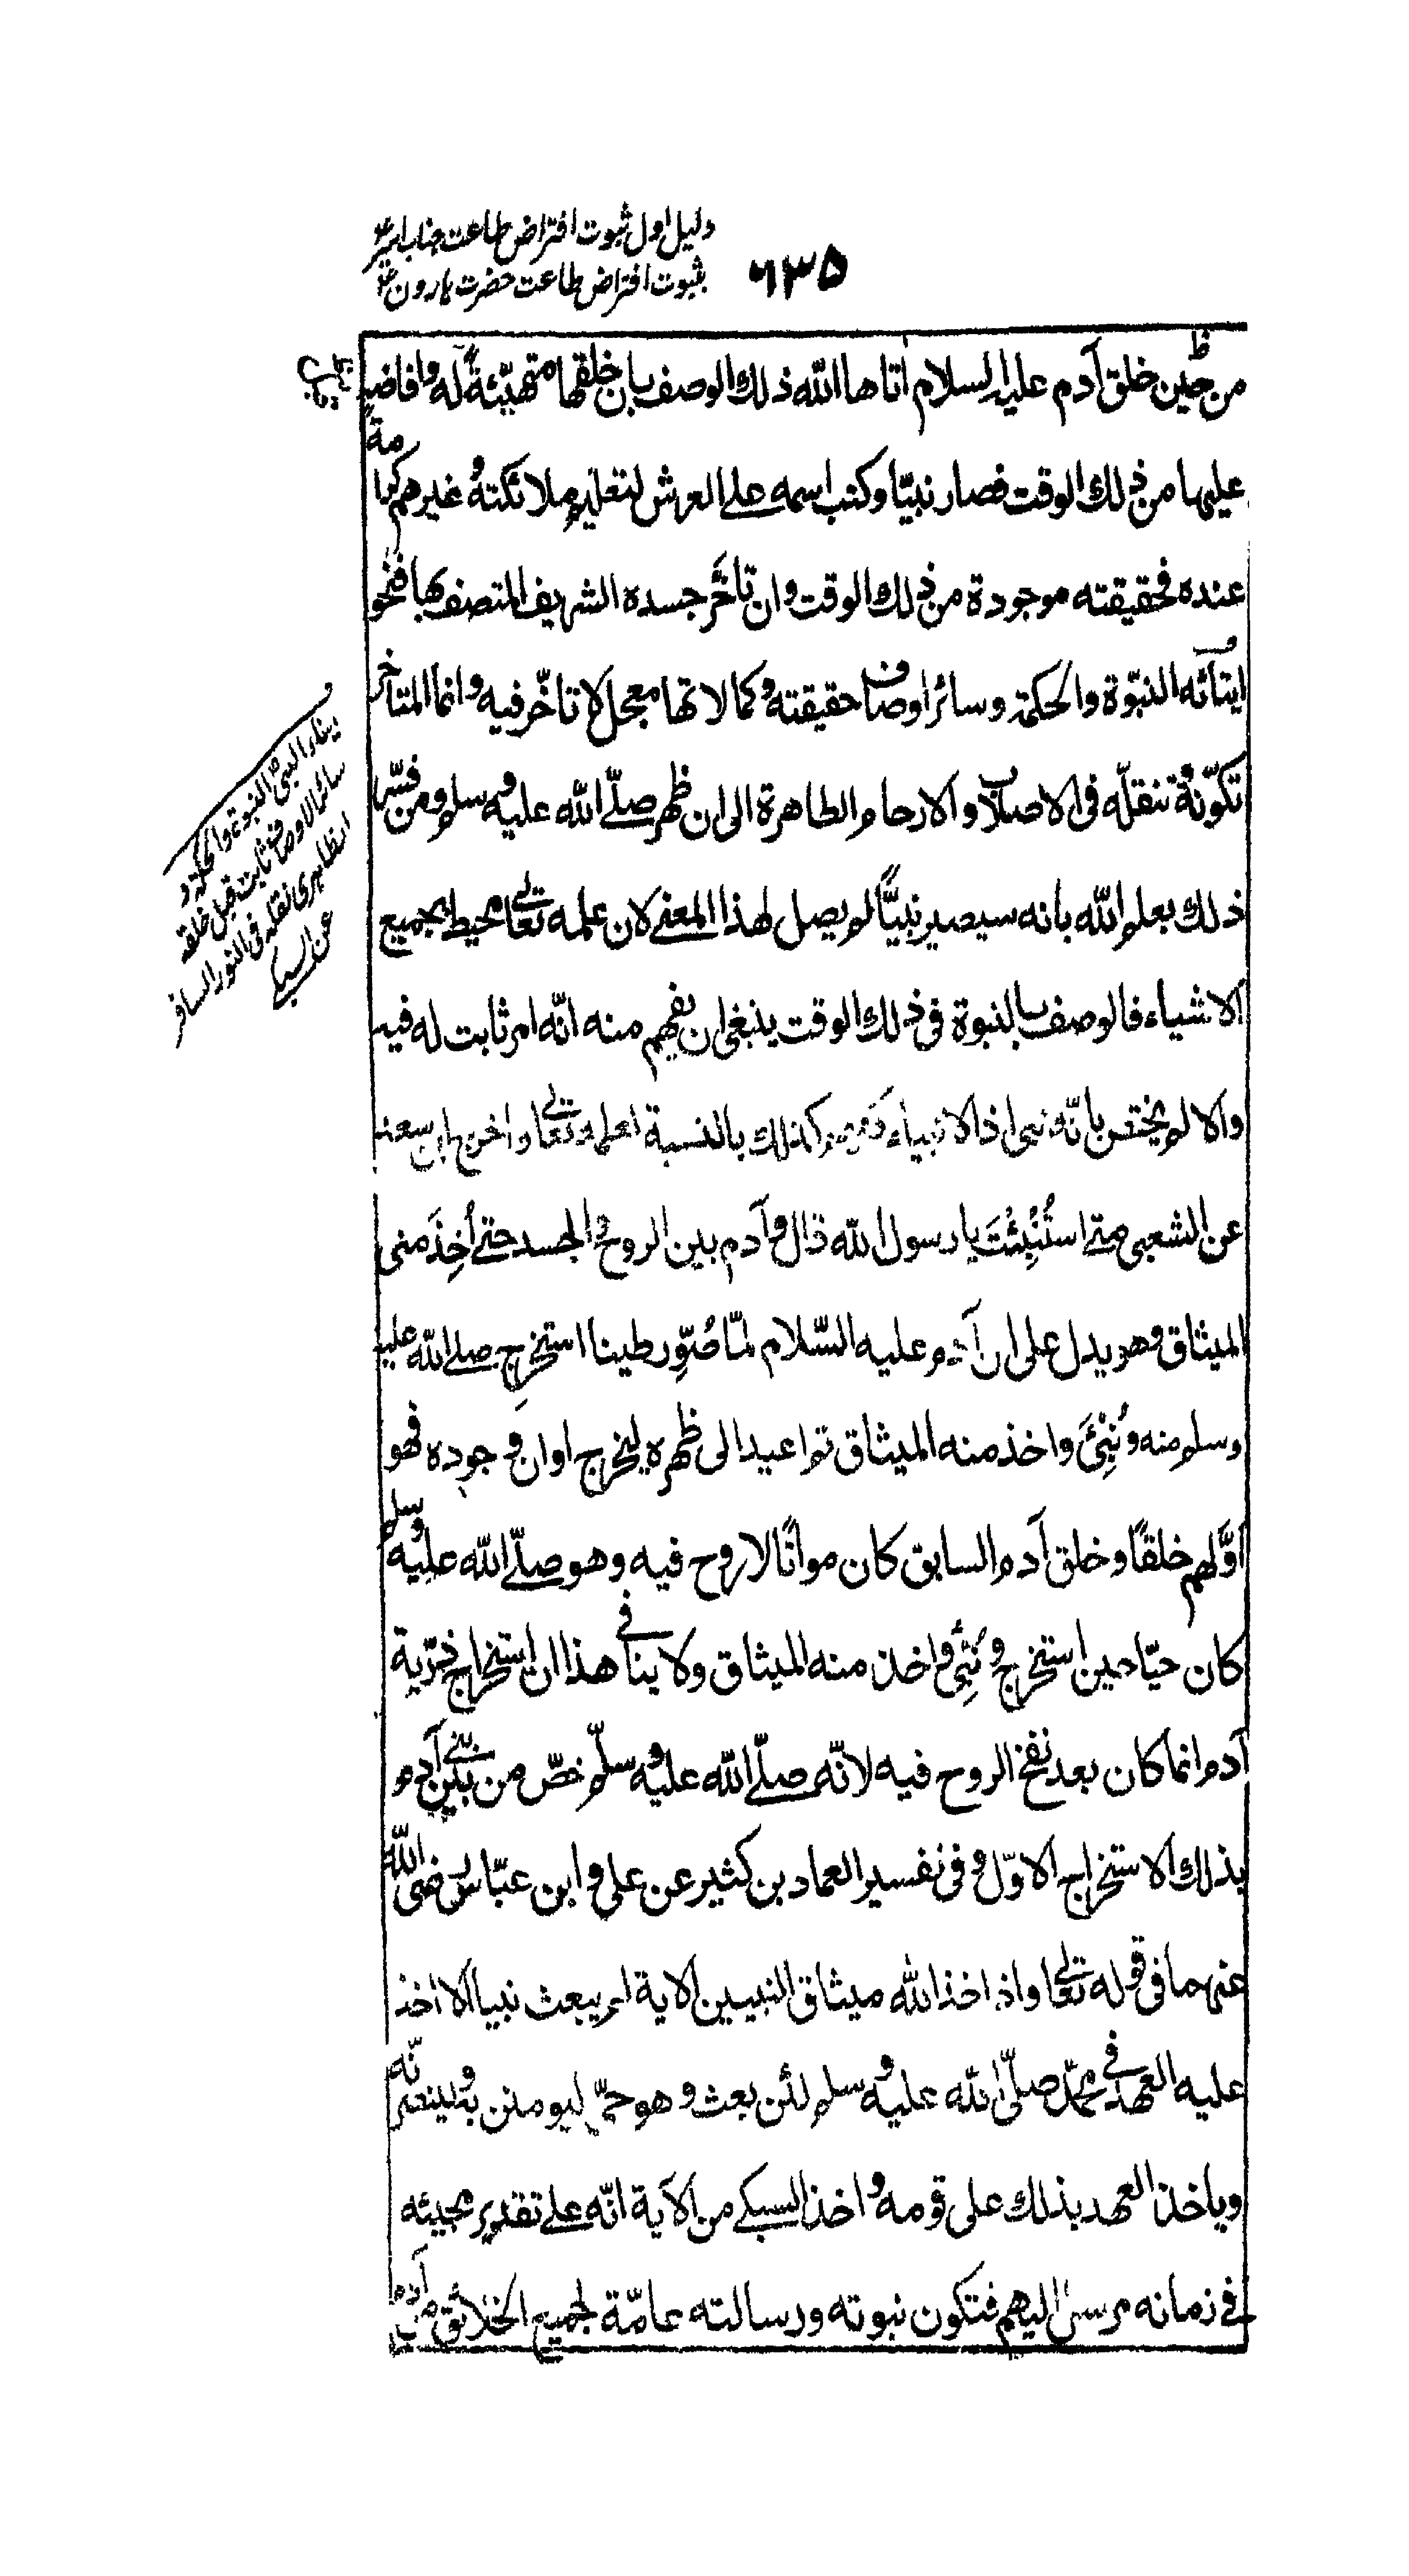 دلیل اول ثبوت افتراض طاعت جناب امیرؑ
بثبوت افتراض طاعت حضرت ہارونؑ
۶۳۵
من طين خلق آدم عليه السلام اتاها الله ذلك الوصف بان خلقها متهيّئةً له وافاضه
عليها من ذلك الوقت فصار نبيّا وكتب اسمه على العرش لتعليم ملائكته وغيرهم كرامةً
عنده فحقيقته موجودة من ذلك الوقت وان تأخّر جسده الشريف المتصف بها فنحو
ايتائه النبوّة والحكمة وسائر اوصاف حقيقته وكمالاتها معجل لا تاخّر فيه وانما المتاخر
تكوّنه وتنقلّه فى الاصلاب والارحام الطاهرة الى ان ظهر صلّى الله عليه وسلم ومن فسّر
ذلك بعلم الله بانه سيصير نبيًّا لم يصل لهذا المعنى لان علمه تعالى محيط بجميع
الاشياء فالوصف بالنبوة فى ذلك الوقت ينبغى ان يفهم منه انّه امر ثابت له فيه
والا لم يختص بانّه نبى اذ الانبياء كلهم كذلك بالنسبة لعلمه تعالى واخرج ابن سعد
عن الشعبى متى استُنْبِئْتَ يا رسول الله قال وآدم بين الروح والجسد حتى أُخِذَ منى
الميثاق وهو يدل على ان آدم عليه السّلام لمّا صُوِّر طينا استخرج صلى الله عليه
وسلم منه ونُبِّئَ واخذ منه الميثاق ثم اعيد الى ظهره ليخرج اوان وجوده فهو
اوّلهم خلقًا وخلق آدم السابق كان مواتًا لا روح فيه وهو صلّى الله عليه وسلم
كان حيّا حين استخرج ونُبِّئ واخذ منه الميثاق ولا ينافى هذا ان استخراج ذرّية
آدم انما كان بعد نفخ الروح فيه لانّه صلّى الله عليه وسلّم خصّ من بين بنى آدم
بذلك الاستخراج الاوّل وفى تفسير العماد بن كثير عن على وابن عبّاس رضى الله
عنهما فى قوله تعالى واذ اخذ الله ميثاق النبيين الاية لم يبعث نبيا الا اخذ
عليه العهد فى محمّد صلّى الله عليه وسلم لئن بعث وهو حىّ ليومنن به ولينصرنّه
وياخذ العهد بذلك على قومه واخذ السبكى من الآية انّه على تقدير مجيئه
فى زمانه مرسل اليهم فتكون نبوته ورسالته عامّة لجميع الخلائق من آدم
ايتاء النبىؐ النبوة والحكمة و
سائر الاوصاف ثابت قبل خلقه
الظاهرى نقله فى النور السافر
عن السبكى